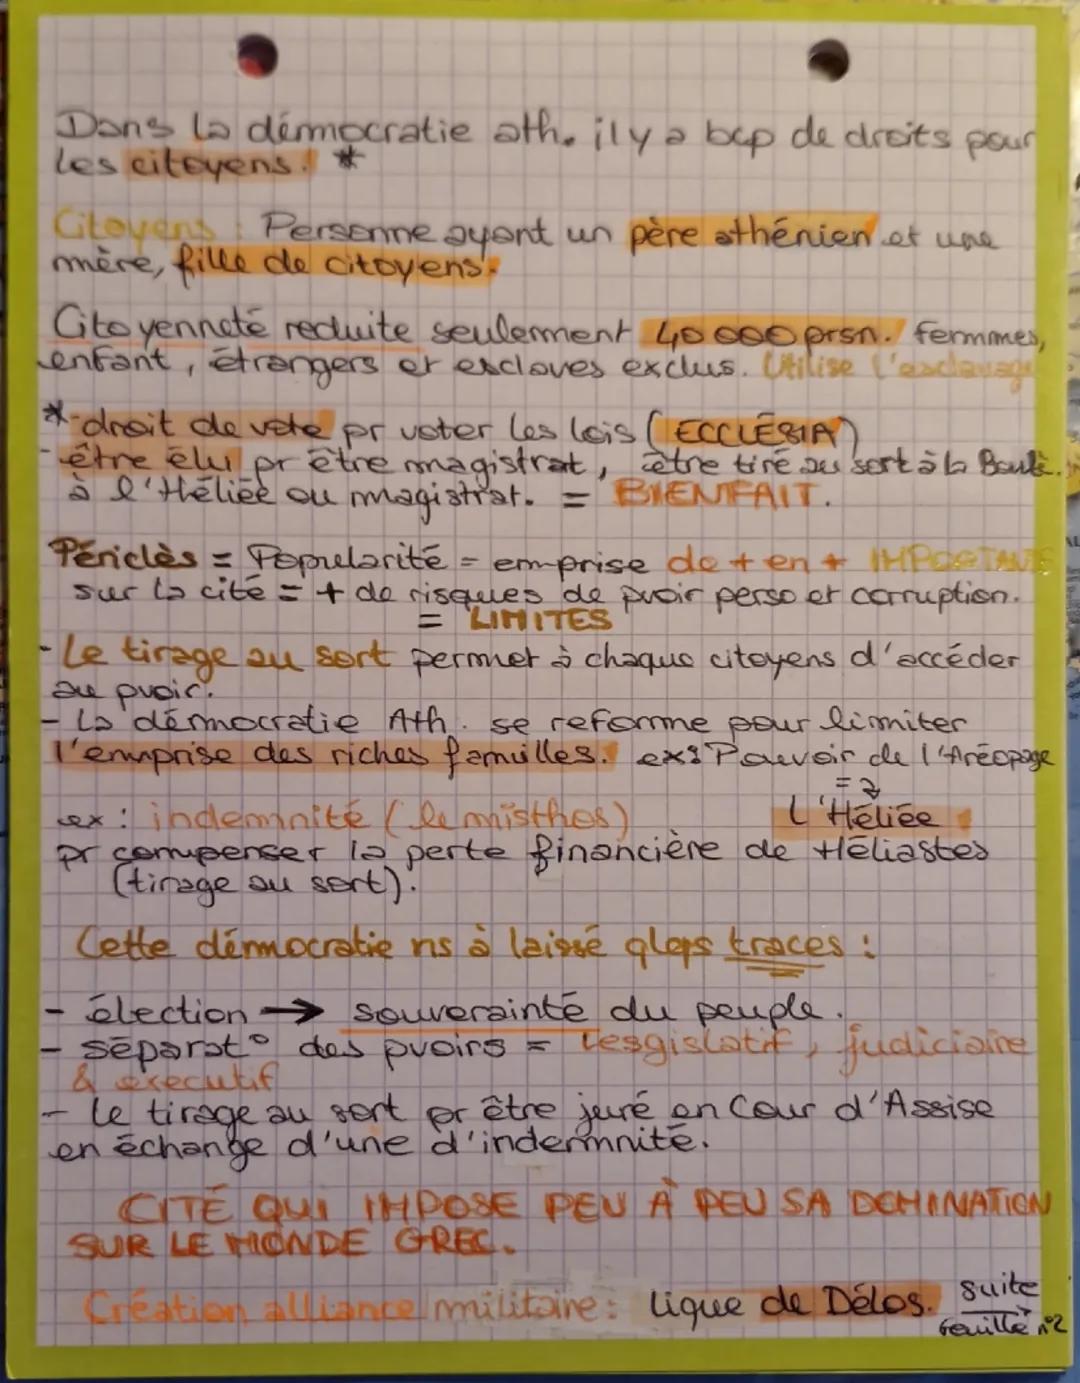 Dans la démocratie ath. il y a bcp de droits pour
les citoyens. *
Citoyens : Personne ayant un père athénien et une
mère, fille de citoyens.
Citoyenneté reduite seulement 40 000 prsn. femmes,
enfant, étrangers et esclaves exclus. Utilise l'esclavage
*-droit de vote pr voter les lois (ECCLÉSIA)
- être élu pr être magistrat, être tiré au sort à la Boulè.
à l'Héliée ou magistrat. = BIENFAIT.
Périclès = Popularité = emprise de + en + IMPORTANTE
sur la cité = + de risques de pvoir perso et corruption.
= LIMITES
- Le tirage au sort permet à chaque citoyens d'accéder
au pvoir.
- La démocratie Ath. se reforme pour limiter
l'emprise des riches familles. ex: Pouvoir de l'Aréopage
= →
L'Héliée
ex : indemnité (le misthos)
pr compenser la perte financière de Héliastes
(tirage au sort).
Cette démocratie ns à laissé qlqs traces :
- élection → souverainté du peuple.
- séparat° des pvoirs = lesgislatif, judiciaire
& executif
- le tirage au sort pr être juré en Cour d'Assise
en échange d'une d'indemnité.
CITÉ QUI IMPOSE PEU À PEU SA DOMINATION
SUR LE MONDE GREC.
Création alliance militaire : ligue de Délos. suite
feuille n°2